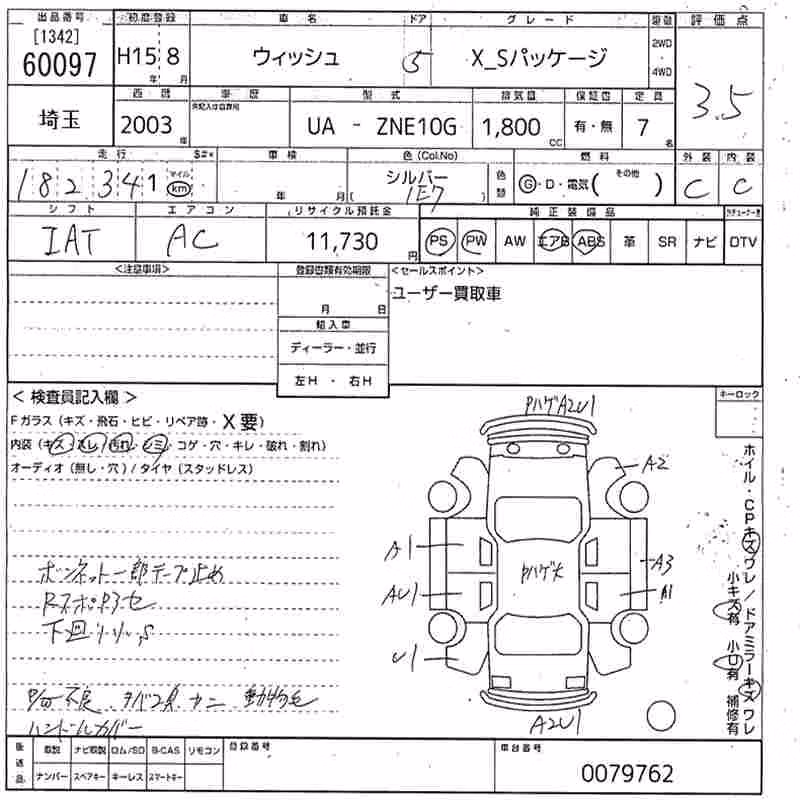 出品番号 初度登録 車名 ドア グレード 駆動 評価点
[1342] 60097 H15 年 8 月 ウィッシュ 5 X_Sパッケージ 2WD 4WD 3.5
埼玉 西暦 車歴 型式 排気量 保証書 定員
2003 年 UA - ZNE10G 1,800 CC 有・無 7 名
走行 車検 色(Col.No) 燃料 外装 内装
182,341 マイル km 年 月 シルバー ( 1E7 ) 色替 G・D・電気( その他 ) C C
シフト エアコン リサイクル預託金 純正装備品
IAT AC 11,730 円 PS PW AW エアB ABS 革 SR ナビ DTV
<注意事項> 登録書類有効期限 <セールスポイント>
月 日 ユーザー買取車
輸入車
ディーラー・並行
左H ・ 右H
< 検査員記入欄 > キーロック
Fガラス(キズ・飛石・ヒビ・リペア跡・X要)
内装(キズ・スレ・汚れ・シミ・コゲ・穴・キレ・破れ・割れ)
オーディオ(無し・穴)/タイヤ(スタッドレス)
PハゲA2U1
A2
A1
Pハゲ大
A3
AU1
A1
U1
A2U1
ホイル・CPキズワレ/ドアミラーキズワレ
小キズ有 小U有 補修有
ボンネット一部テープ止め
下廻り
動物毛
ハンドルカバー
後送品 取説 ナビ取説 ロム/SD B-CAS リモコン 登録番号 車台番号
ナンバー スペアキー キーレス スマートキー 0079762